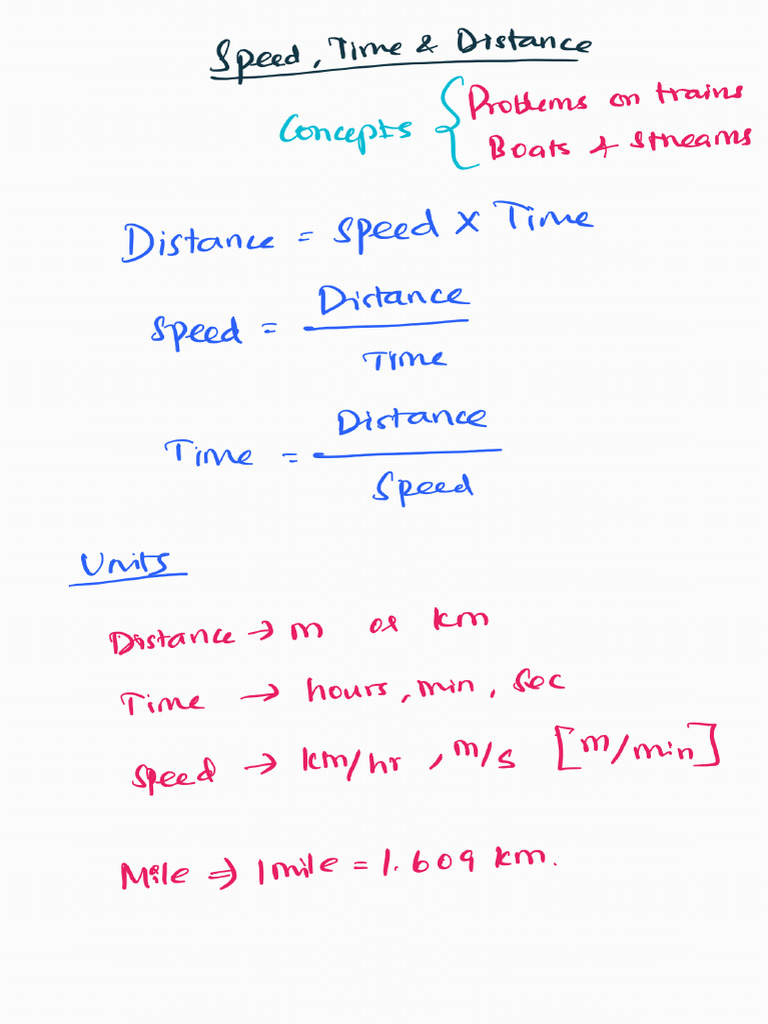 Speed, Time & Distance
Concepts { Problems on trains
Boats & streams
Distance = Speed × Time
Speed = Distance / Time
Time = Distance / Speed
Units
Distance → m or km
Time → hours, min, sec
Speed → km/hr, m/s [m/min]
Mile ⇒ 1 mile = 1.609 km.